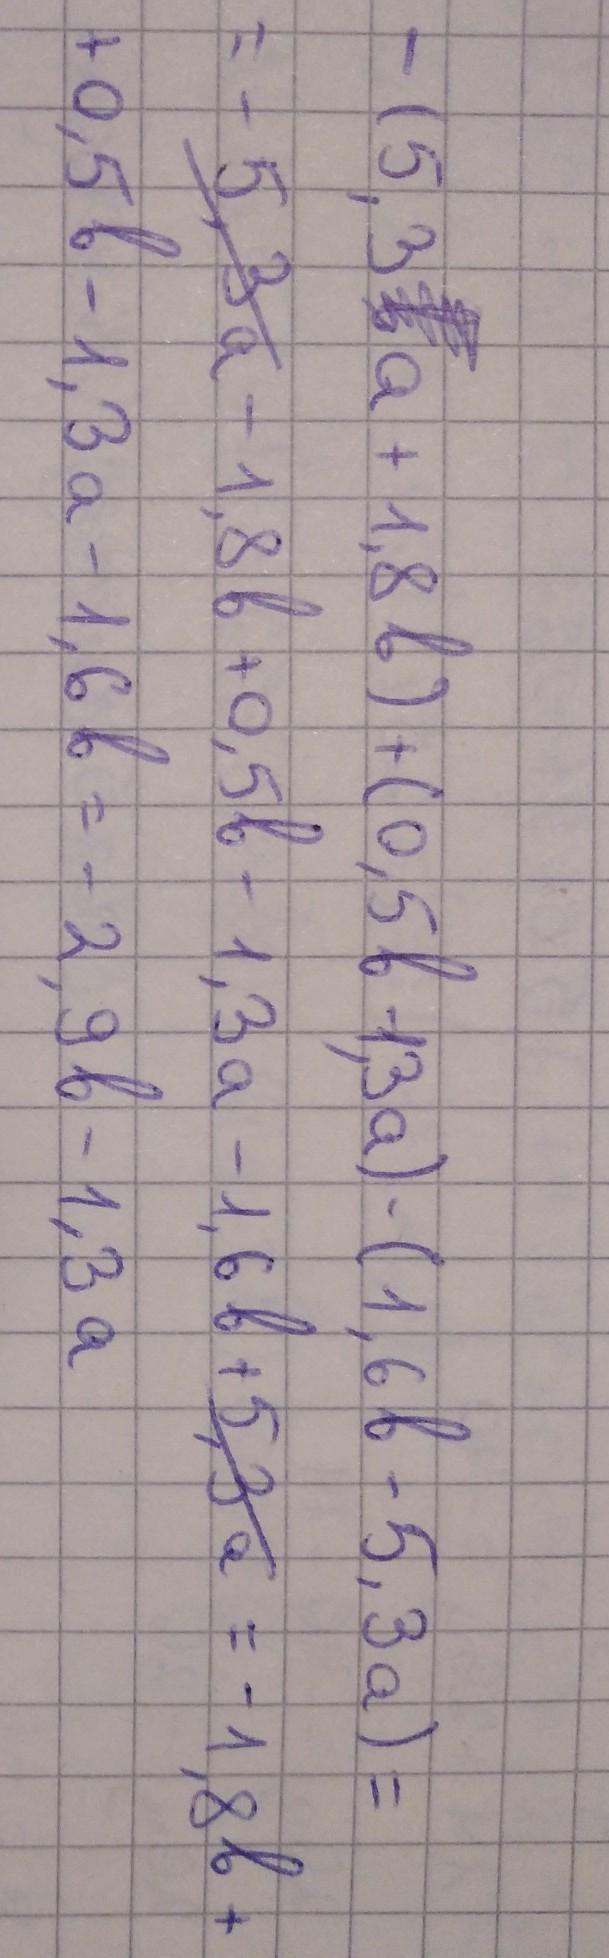 -(5,3a + 1,8b) + (0,5b - 1,3a) - (1,6b - 5,3a) =
= - 5,3a - 1,8b + 0,5b - 1,3a - 1,6b + 5,3a = - 1,8b +
+ 0,5b - 1,3a - 1,6b = - 2,9b - 1,3a